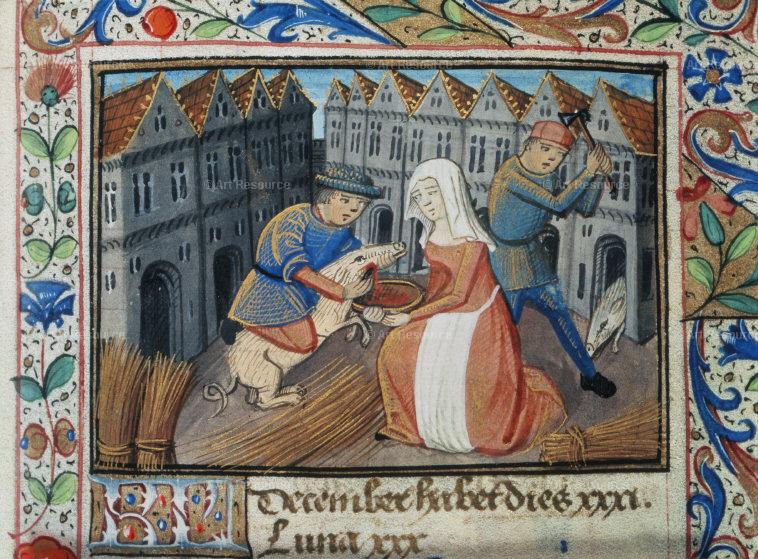 © Art Resource
© Art Resource
© Art Resource
KL
December habet dies xxxi.
Luna xxx